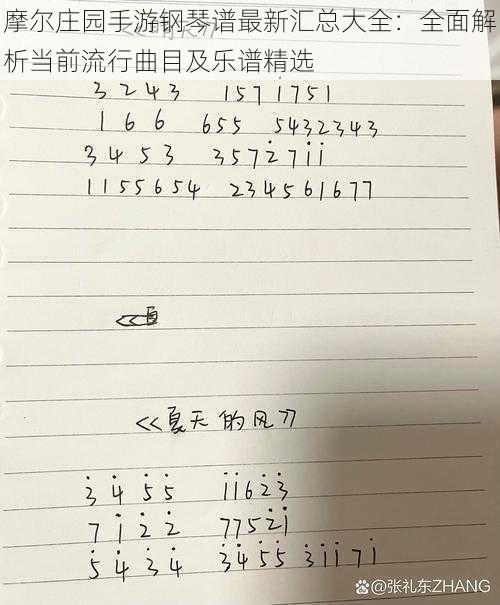 摩尔庄园手游钢琴谱最新汇总大全：全面解
析当前流行曲目及乐谱精选
3 2 4 3 1571̇751
1 6 6 655 5432343
3 4 5 3 3572̇71̇1̇
1155654 234561677
<<夏
<<夏天的风>>
3̇ 4̇ 5̇ 5̇ 1̇1̇62̇3̇
7 1̇ 2̇ 2̇ 7752̇1̇
5̇ 4̇ 3̇ 4̇ 3̇4̇5̇5̇ 3̇1̇1̇71̇
@张礼东ZHANG